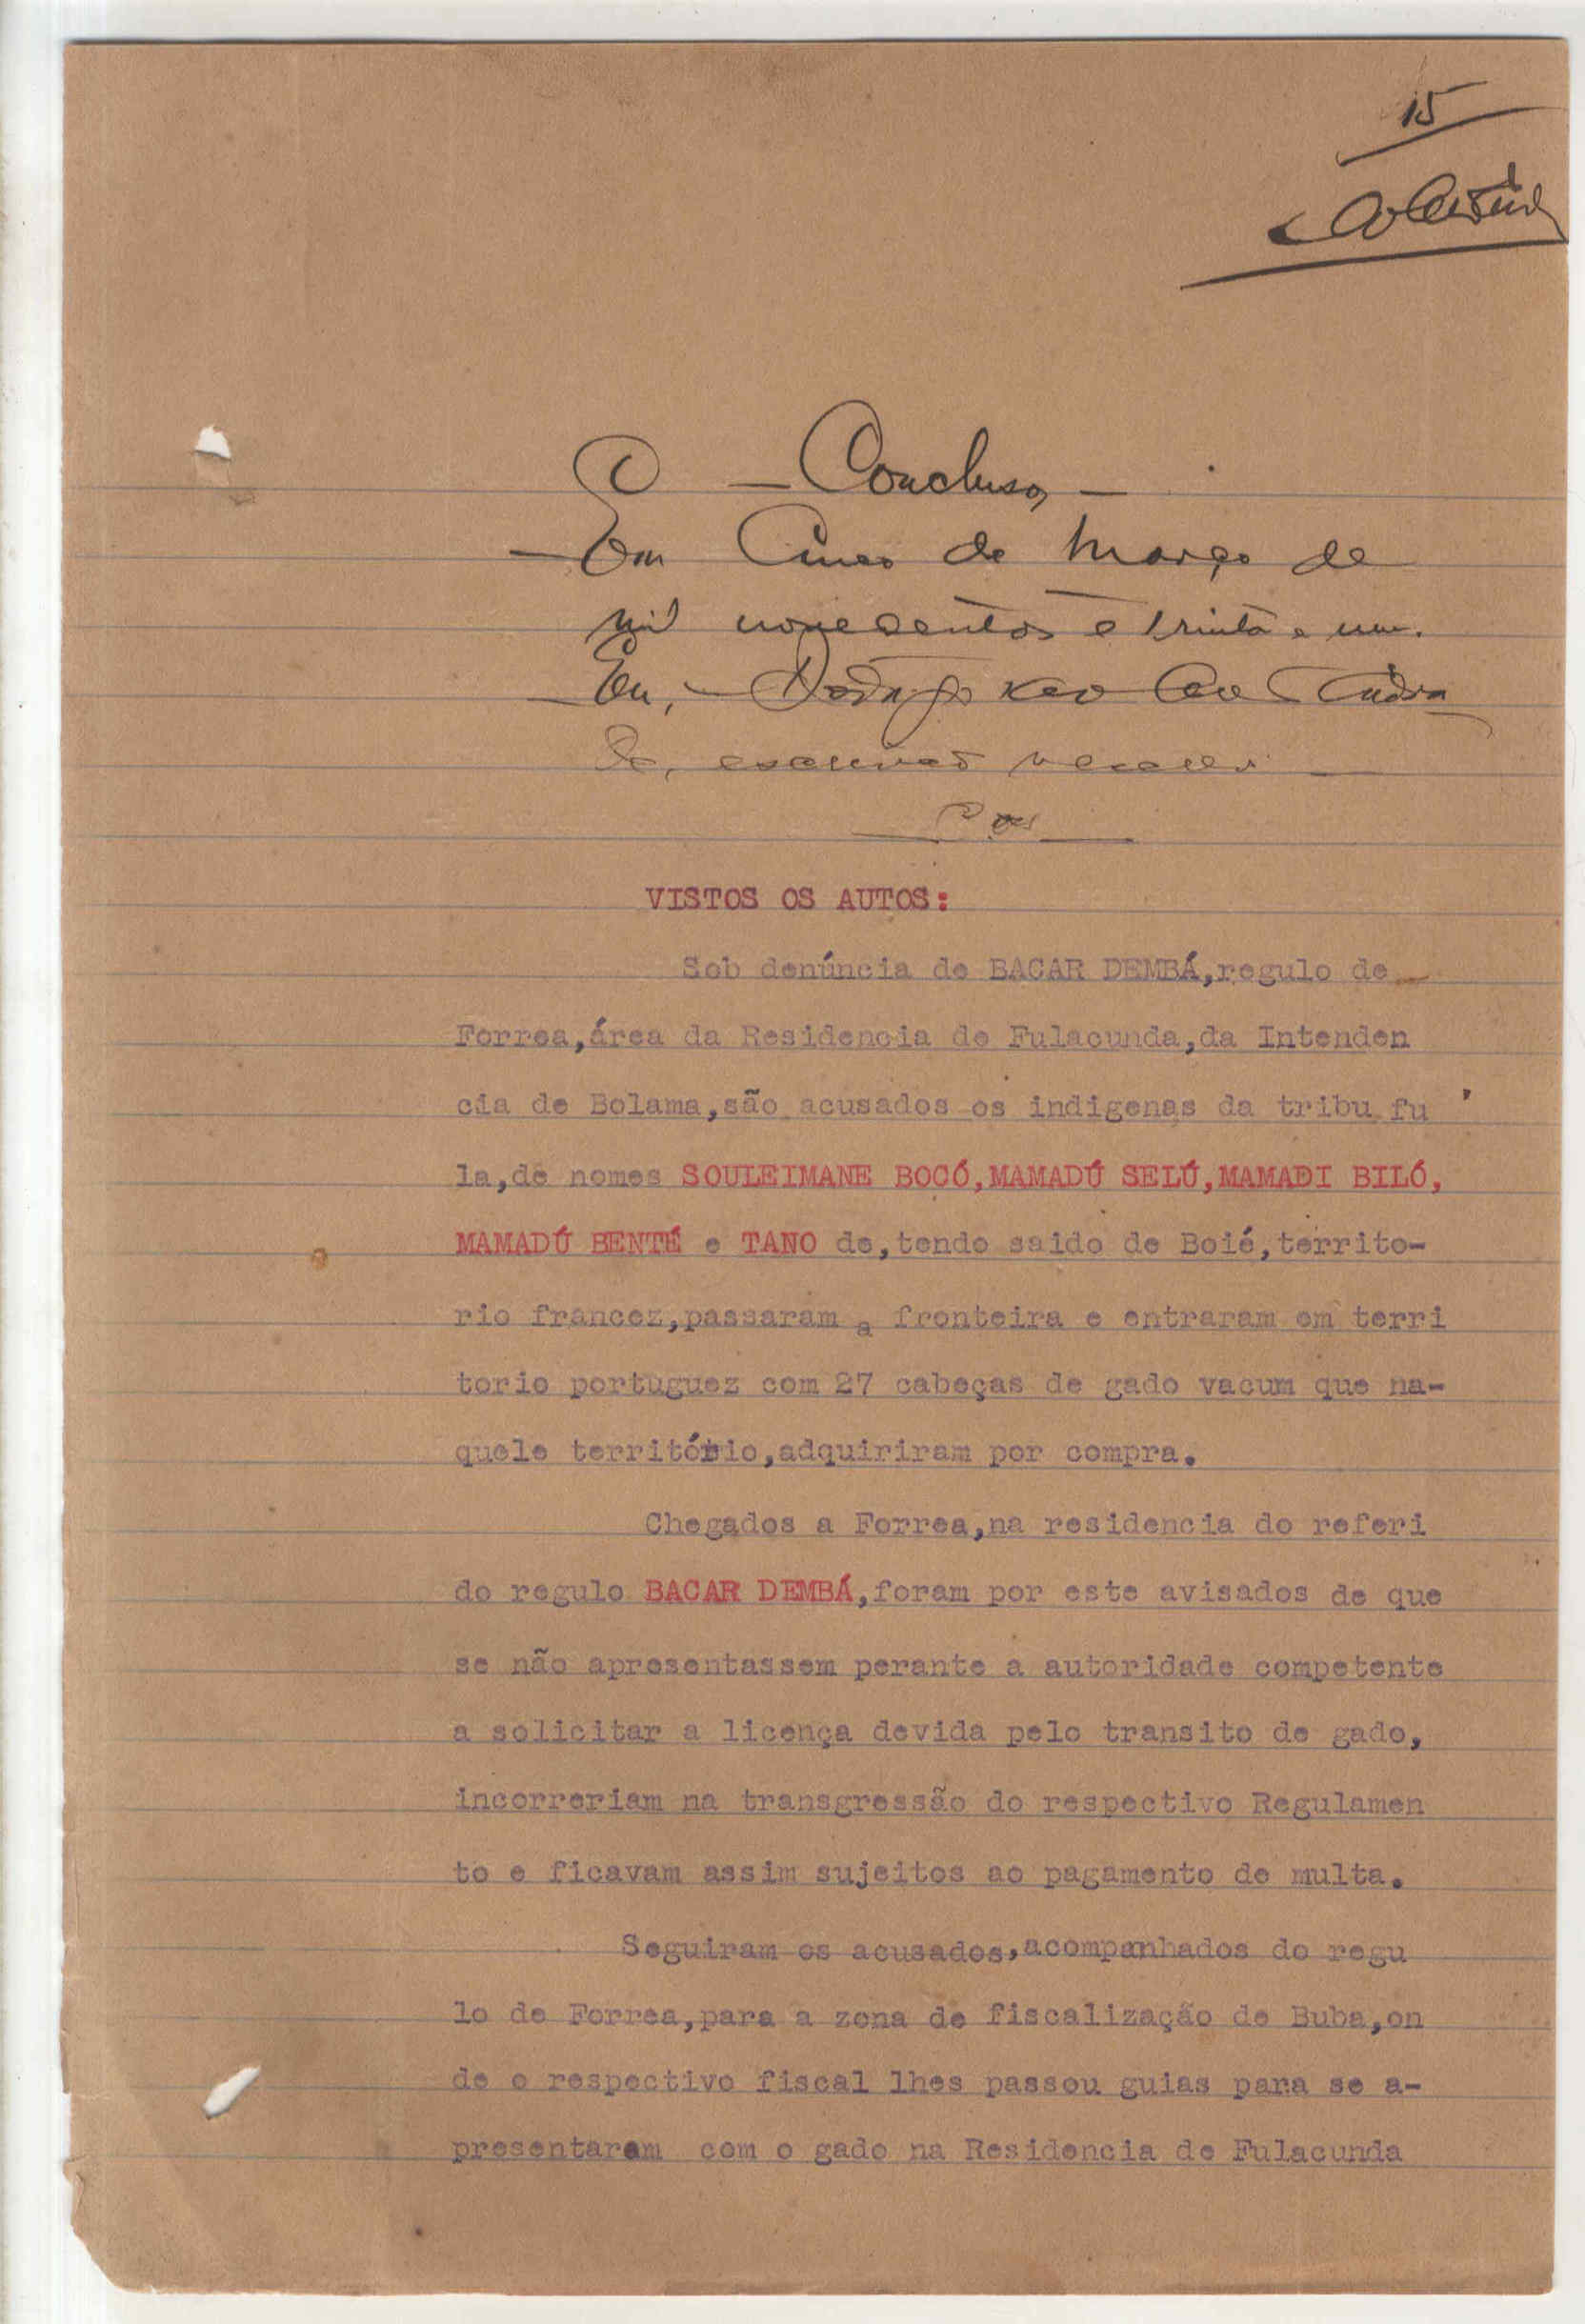 15
— Conclusos —
— Em Cinco de Março de
mil novecentos e trinta e um.
Eu,
escrivão
VISTOS OS AUTOS:
Sob denúncia de BACAR DEMBÁ,regulo de
Forrea,área da Residencia de Fulacunda,da Intenden
cia de Bolama,são acusados os indigenas da tribu fu
la,de nomes SOULEIMANE BOCÓ,MAMADÚ SELÚ,MAMADI BILÓ,
MAMADÚ BENTÉ e TANO de,tendo saido de Boié,territo-
rio francez,passaram a fronteira e entraram em terri
torio portuguez com 27 cabeças de gado vacum que na-
quele território,adquiriram por compra.
Chegados a Forrea,na residencia do referi
do regulo BACAR DEMBÁ,foram por este avisados de que
se não apresentassem perante a autoridade competente
a solicitar a licença devida pelo transito de gado,
incorreriam na transgressão do respectivo Regulamen
to e ficavam assim sujeitos ao pagamento de multa.
Seguiram os acusados,acompanhados do regu
lo de Forrea,para a zona de fiscalização de Buba,on
de o respectivo fiscal lhes passou guias para se a-
presentarem com o gado na Residencia de Fulacunda